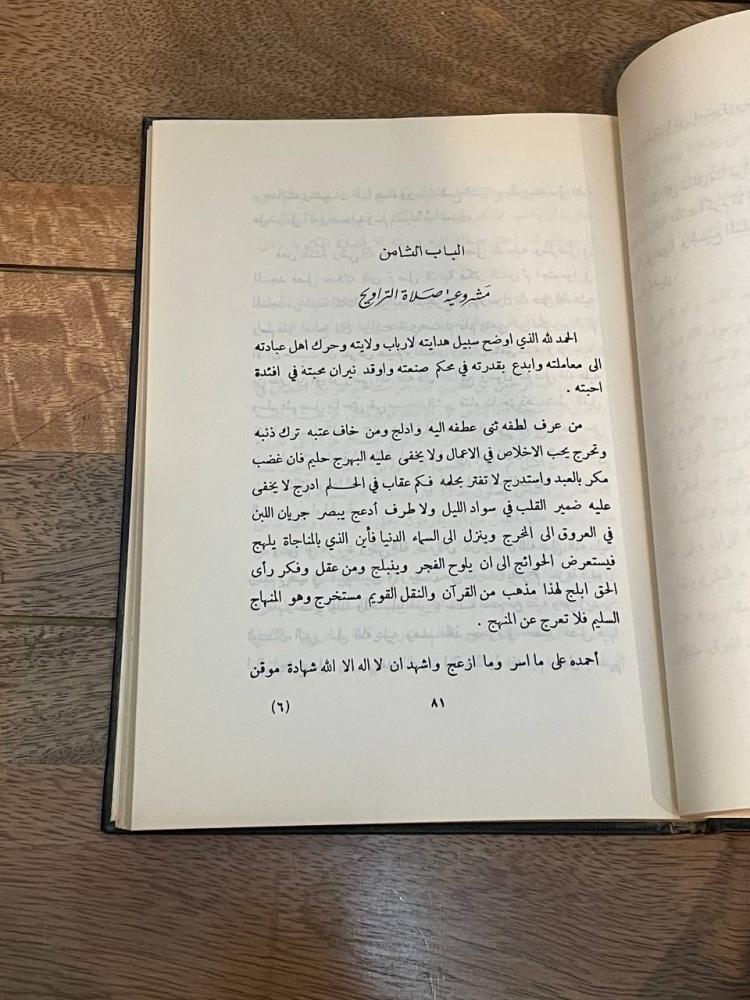 الباب الثامن
مشروعية صلاة التراويح
الحمد لله الذي اوضح سبيل هدايته لارباب ولايته وحرك اهل عبادته
الى معاملته وابدع بقدرته في محكم صنعته واوقد نيران محبته في افئدة
احبته .
من عرف لطفه ثنى عطفه اليه وادلج ومن خاف عتبه ترك ذنبه
وتحرج يحب الاخلاص في الاعمال ولا يخفى عليه البهرج حليم فان غضب
مكر بالعبد واستدرج لا تغتر بحلمه فكم عقاب في الحلم ادرج لا يخفى
عليه ضمير القلب في سواد الليل ولا طرف أدعج يبصر جريان اللبن
في العروق الى المخرج وينزل الى السماء الدنيا فأين الذي بالمناجاة يلهج
فيستعرض الحوائج الى ان يلوح الفجر وينبلج ومن عقل وفكر رأى
الحق ابلج لهذا مذهب من القرآن والنقل القويم مستخرج وهو المنهاج
السليم فلا تعرج عن المنهج .
أحمده على ما اسر وما ازعج واشهد ان لا اله الا الله شهادة موقن
٨١
(٦)